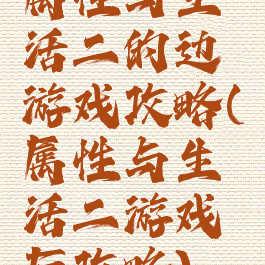 属性与生
活二的边
游戏攻略(
属性与生
活二游戏